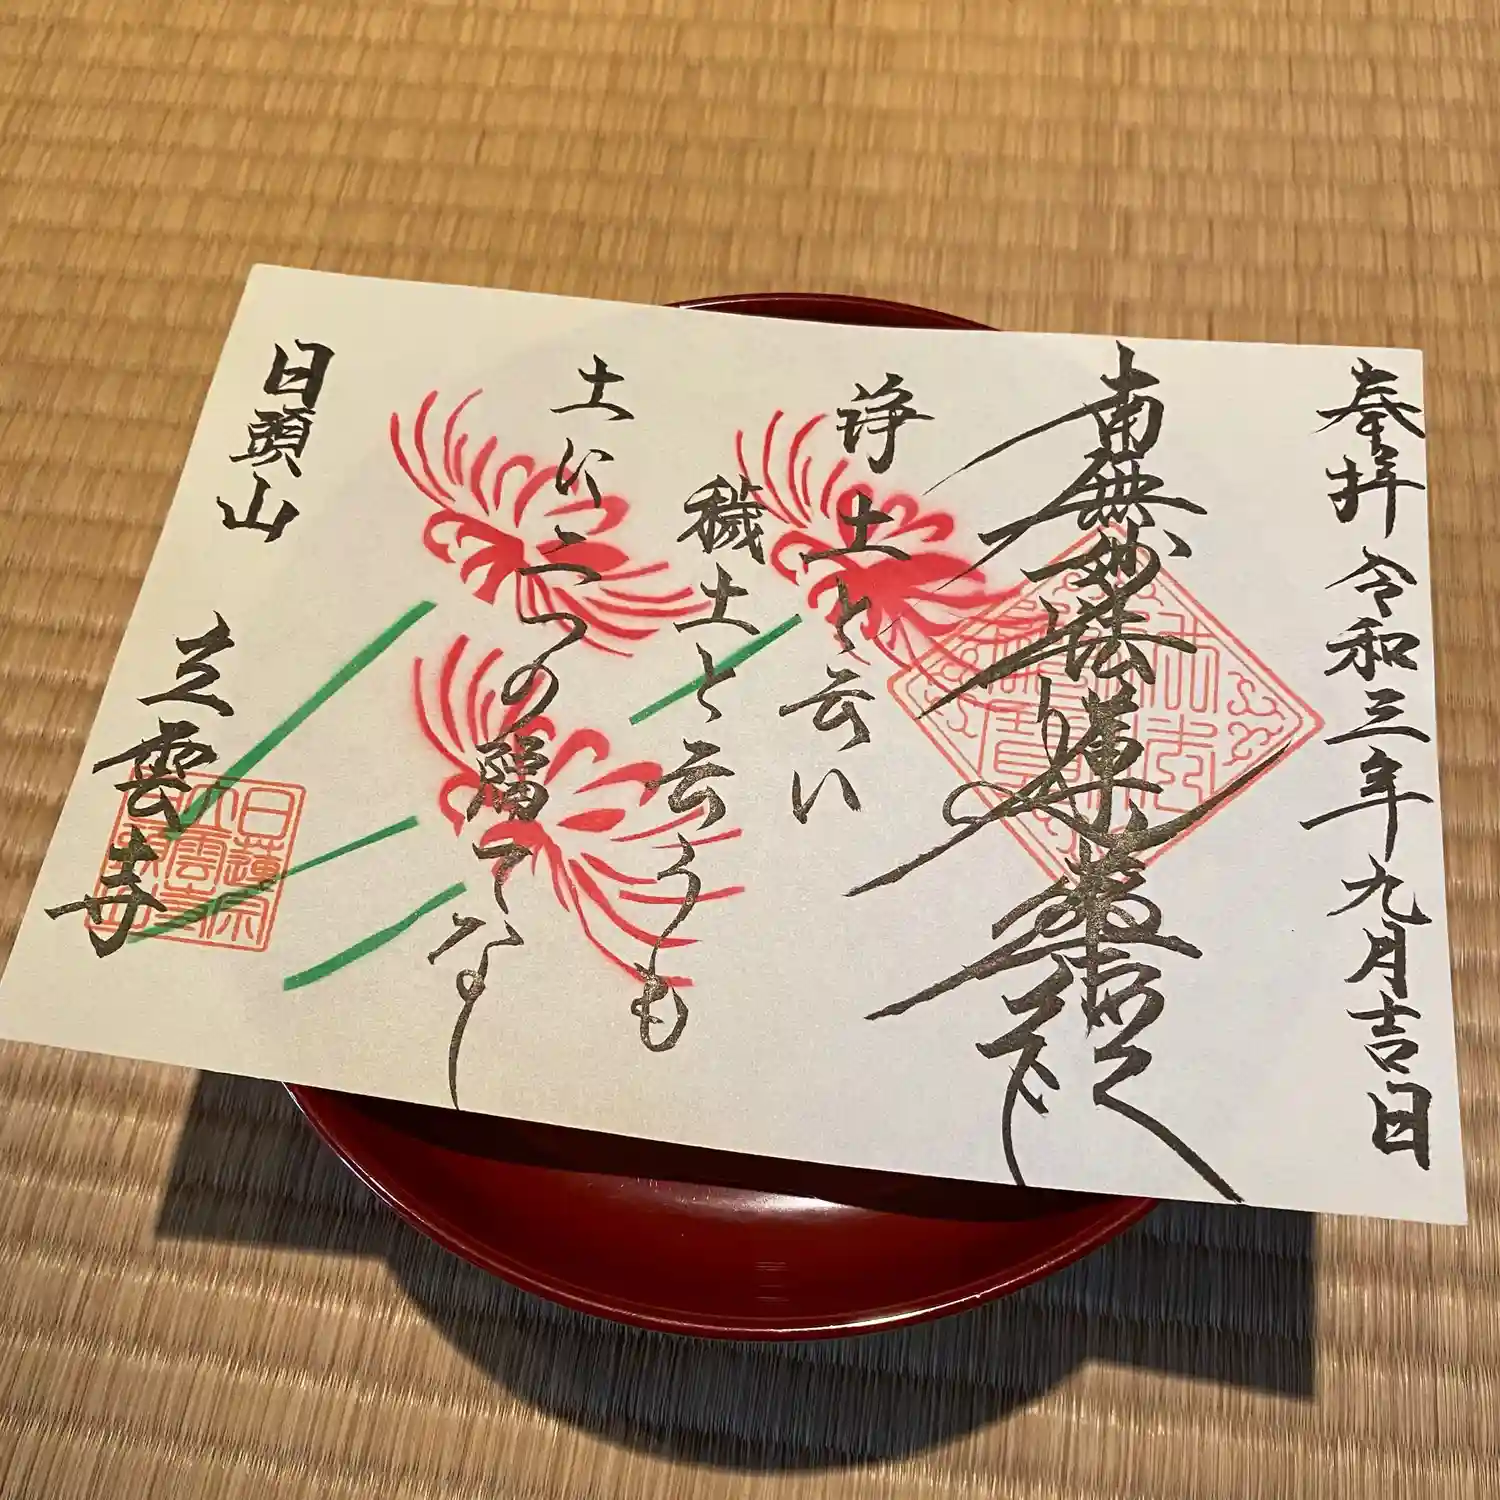 奉拝 令和三年九月吉日
南無妙法蓮華経
浄土と云い
穢土と云うも
土に二つの隔てなし
日頭山
立雲寺
日蓮宗
立雲寺